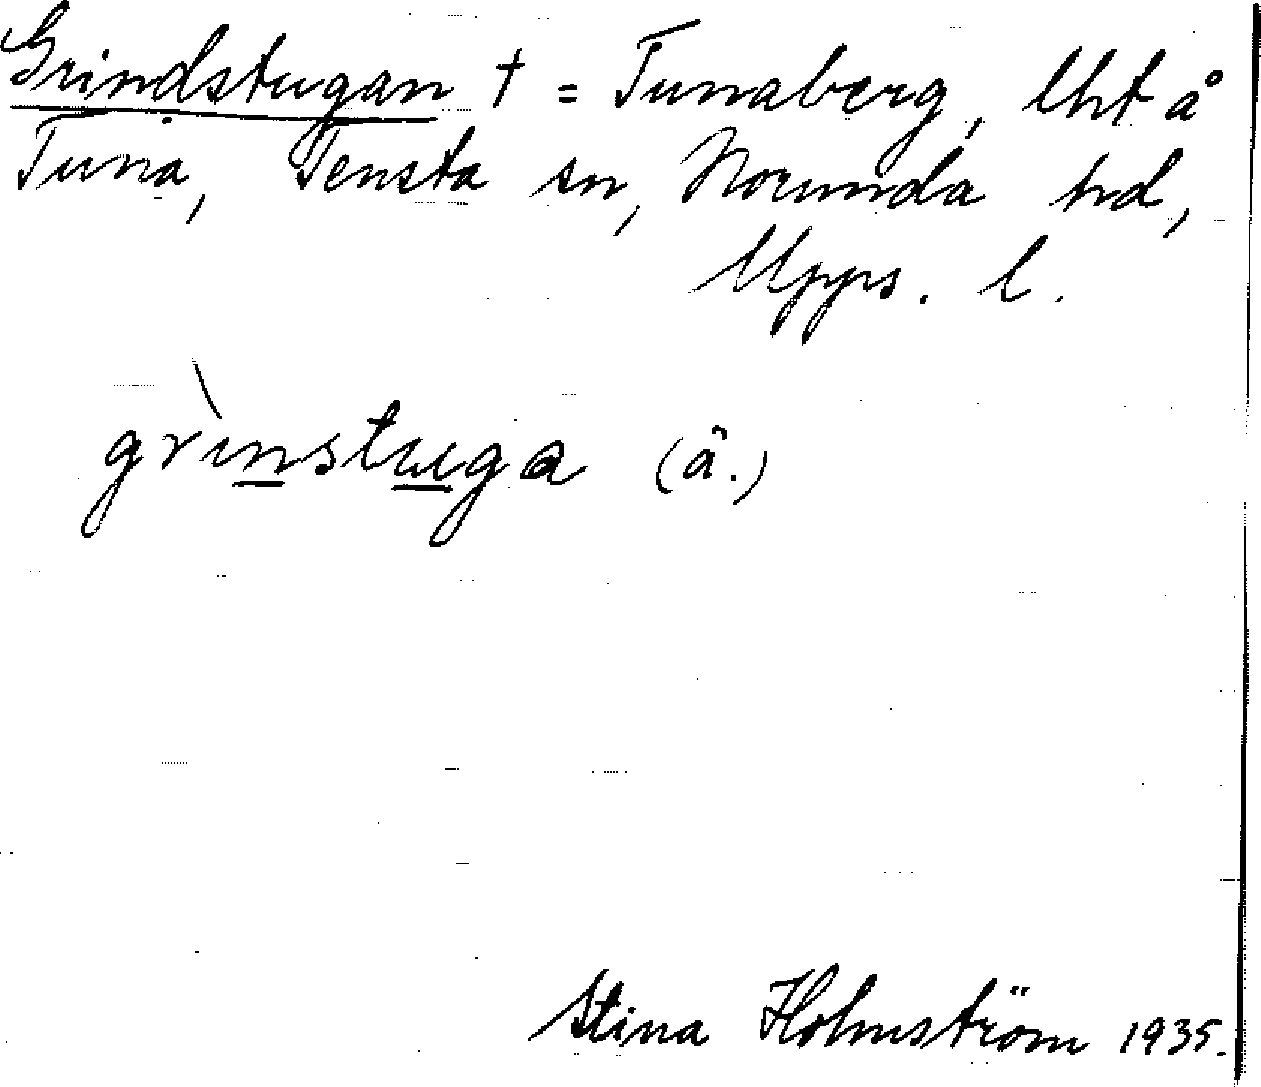 Grindstugan † = Tunaberg, lht å
Tuna, Tensta sn, Norunda hd,
Upps. l.
grìnstuga (â.)
Stina Holmström 1935.